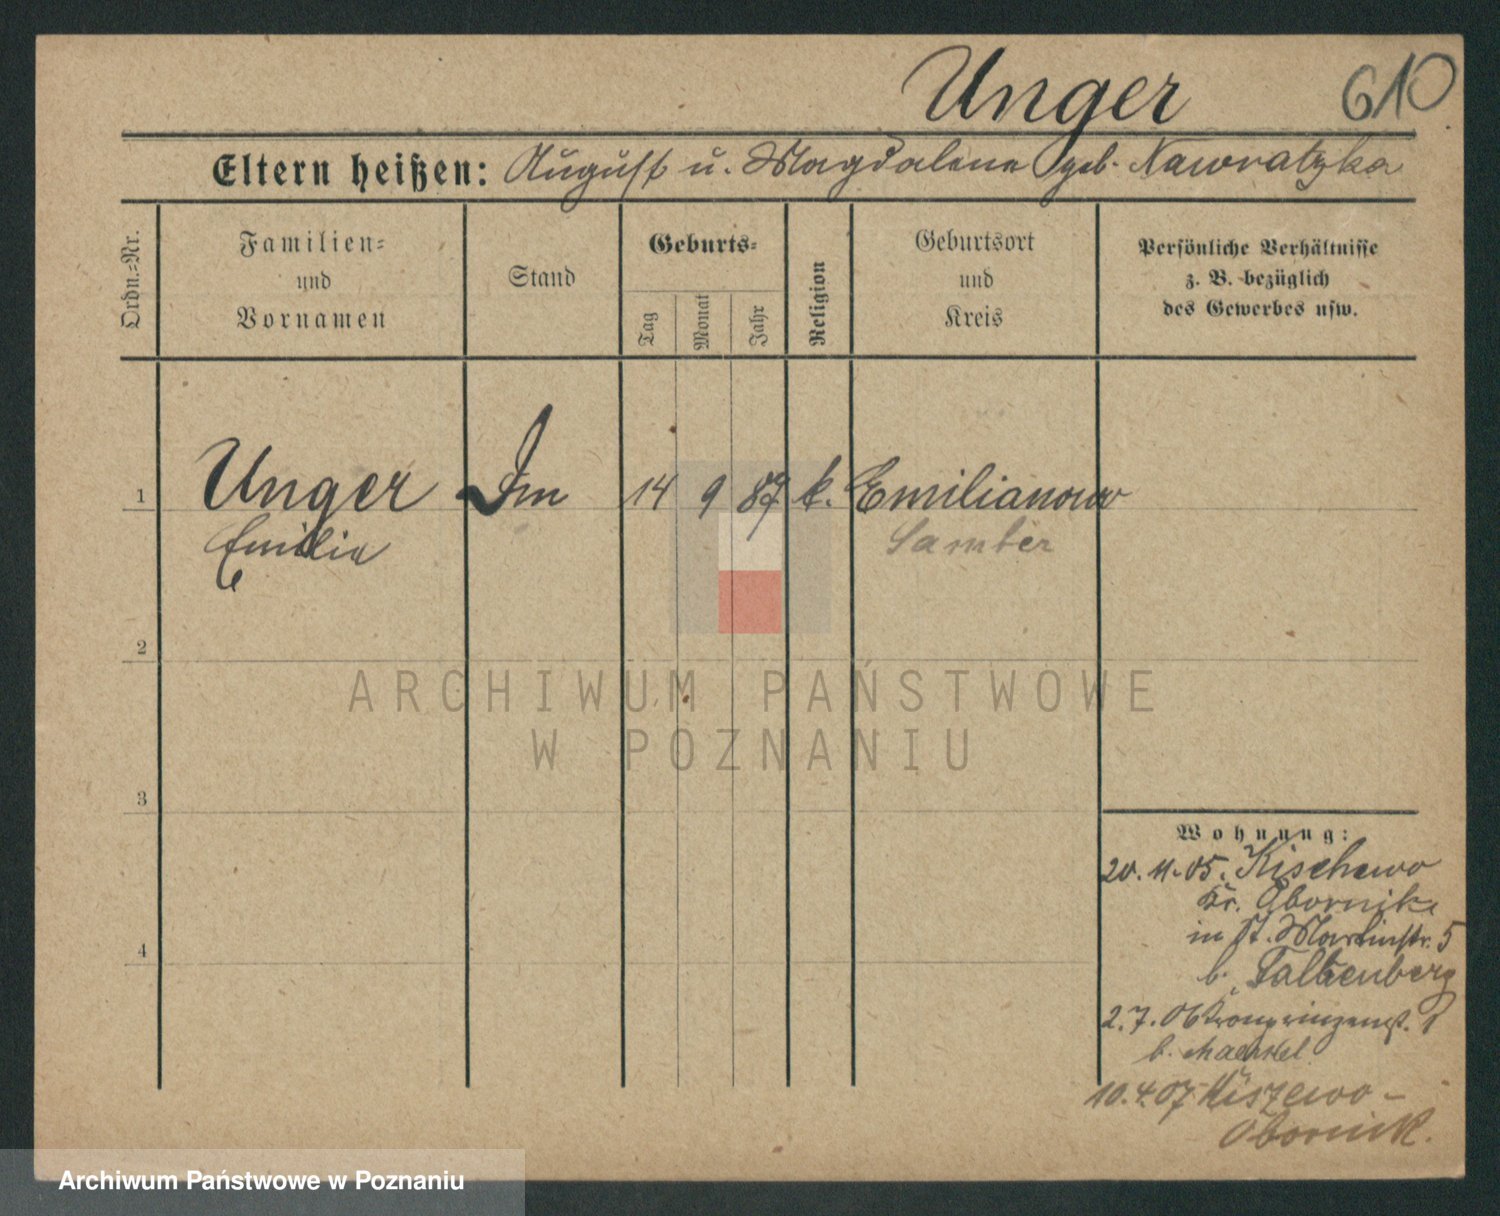 Unger 610
Eltern heißen: August u. Magdalena geb. Nawratzka
Ordn.=Nr.
Familien=
und
Vornamen
Stand
Geburts=
Tag
Monat
Jahr
Religion
Geburtsort
und
Kreis
Persönliche Verhältnisse
z. B. bezüglich
des Gewerbes usw.
1 Unger 14 9 87 k. Emilianowo
Emilie Samter
2
3
4
Wohnung:
20. 11. 05. Kischewo
Kr. Obornik
in St. Martinstr. 5
b. Falkenberg
2. 7. 06 Kronprinzenst.
b.
10.4.07 Kiszewo -
Obornik.
ARCHIWUM PAŃSTWOWE
W POZNANIU
Archiwum Państwowe w Poznaniu